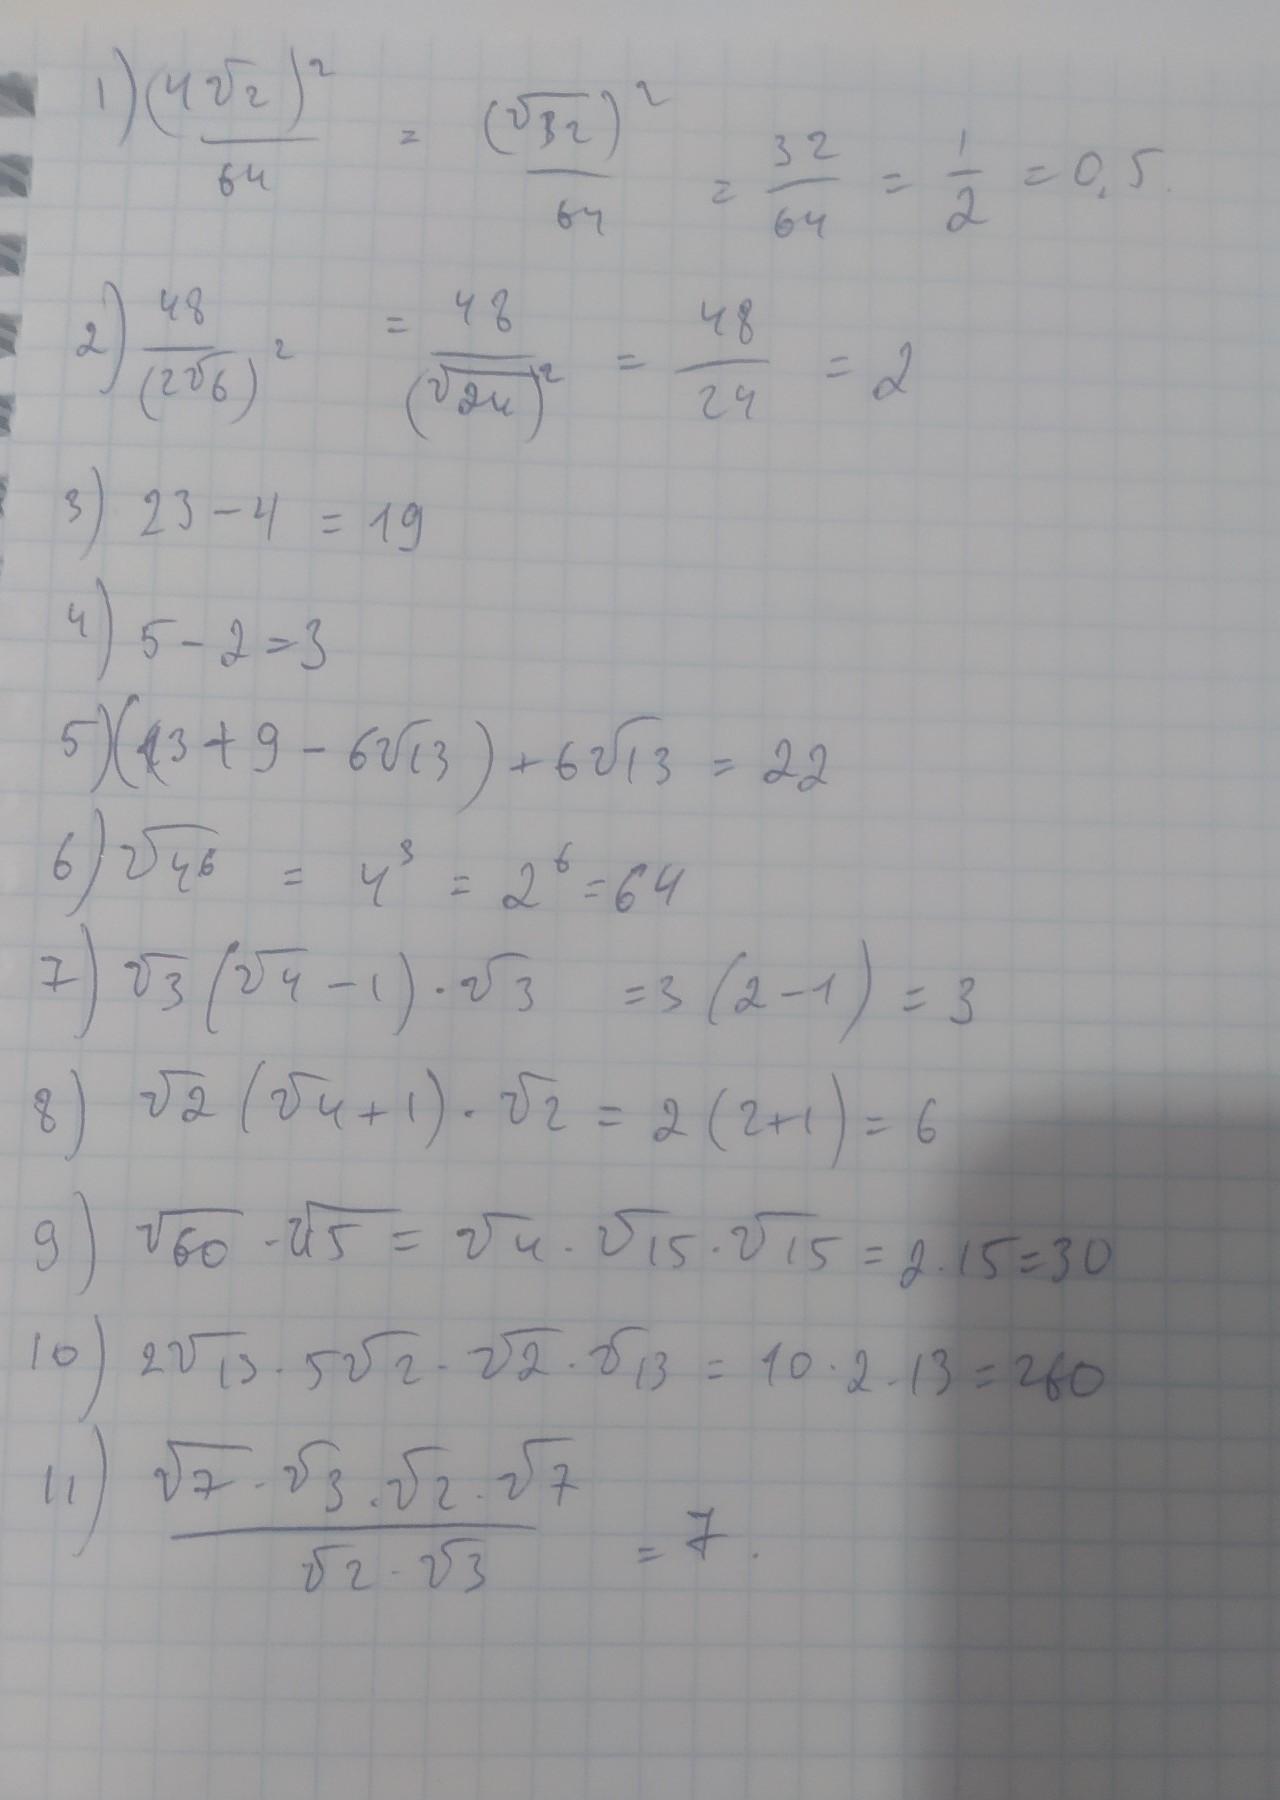 1) (4√2)² / 64 = (√32)² / 64 = 32/64 = 1/2 = 0,5.
2) 48 / (2√6)² = 48 / (√24)² = 48/24 = 2
3) 23 - 4 = 19
4) 5 - 2 = 3
5) (13 + 9 - 6√13) + 6√13 = 22
6) √4⁶ = 4³ = 2⁶ = 64
7) √3 (√4 - 1) · √3 = 3 (2 - 1) = 3
8) √2 (√4 + 1) · √2 = 2 (2+1) = 6
9) √60 · √15 = √4 · √15 · √15 = 2 · 15 = 30
10) 2√13 · 5√2 · √2 · √13 = 10 · 2 · 13 = 260
11) √7 · √3 · √2 · √7 / √2 · √3 = 7.